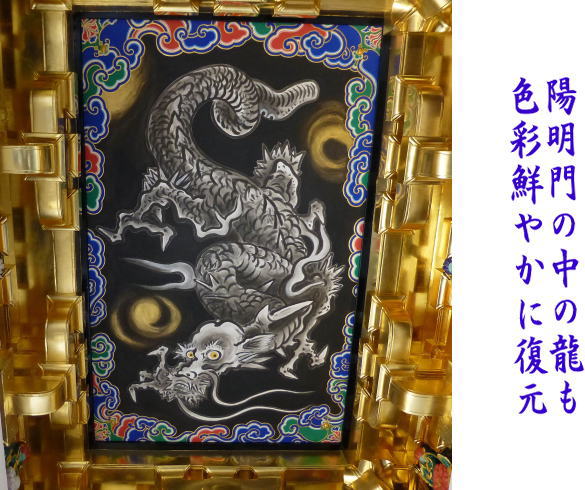 陽明門の中の龍も
色彩鮮やかに復元